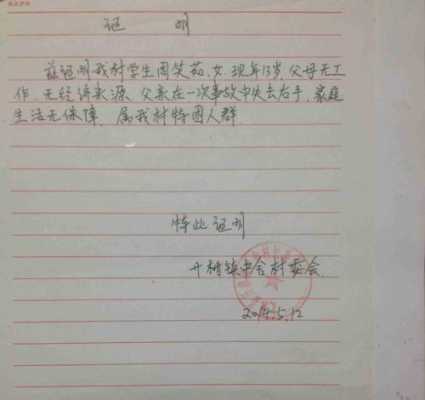 证 明
兹证明我村学生周笑茹、女、现年13岁,父母无工
作,无经济来源、父亲在一次事故中失去右手,家庭
生活无保障、属我村特困人群
特此证明
村委会
5.12